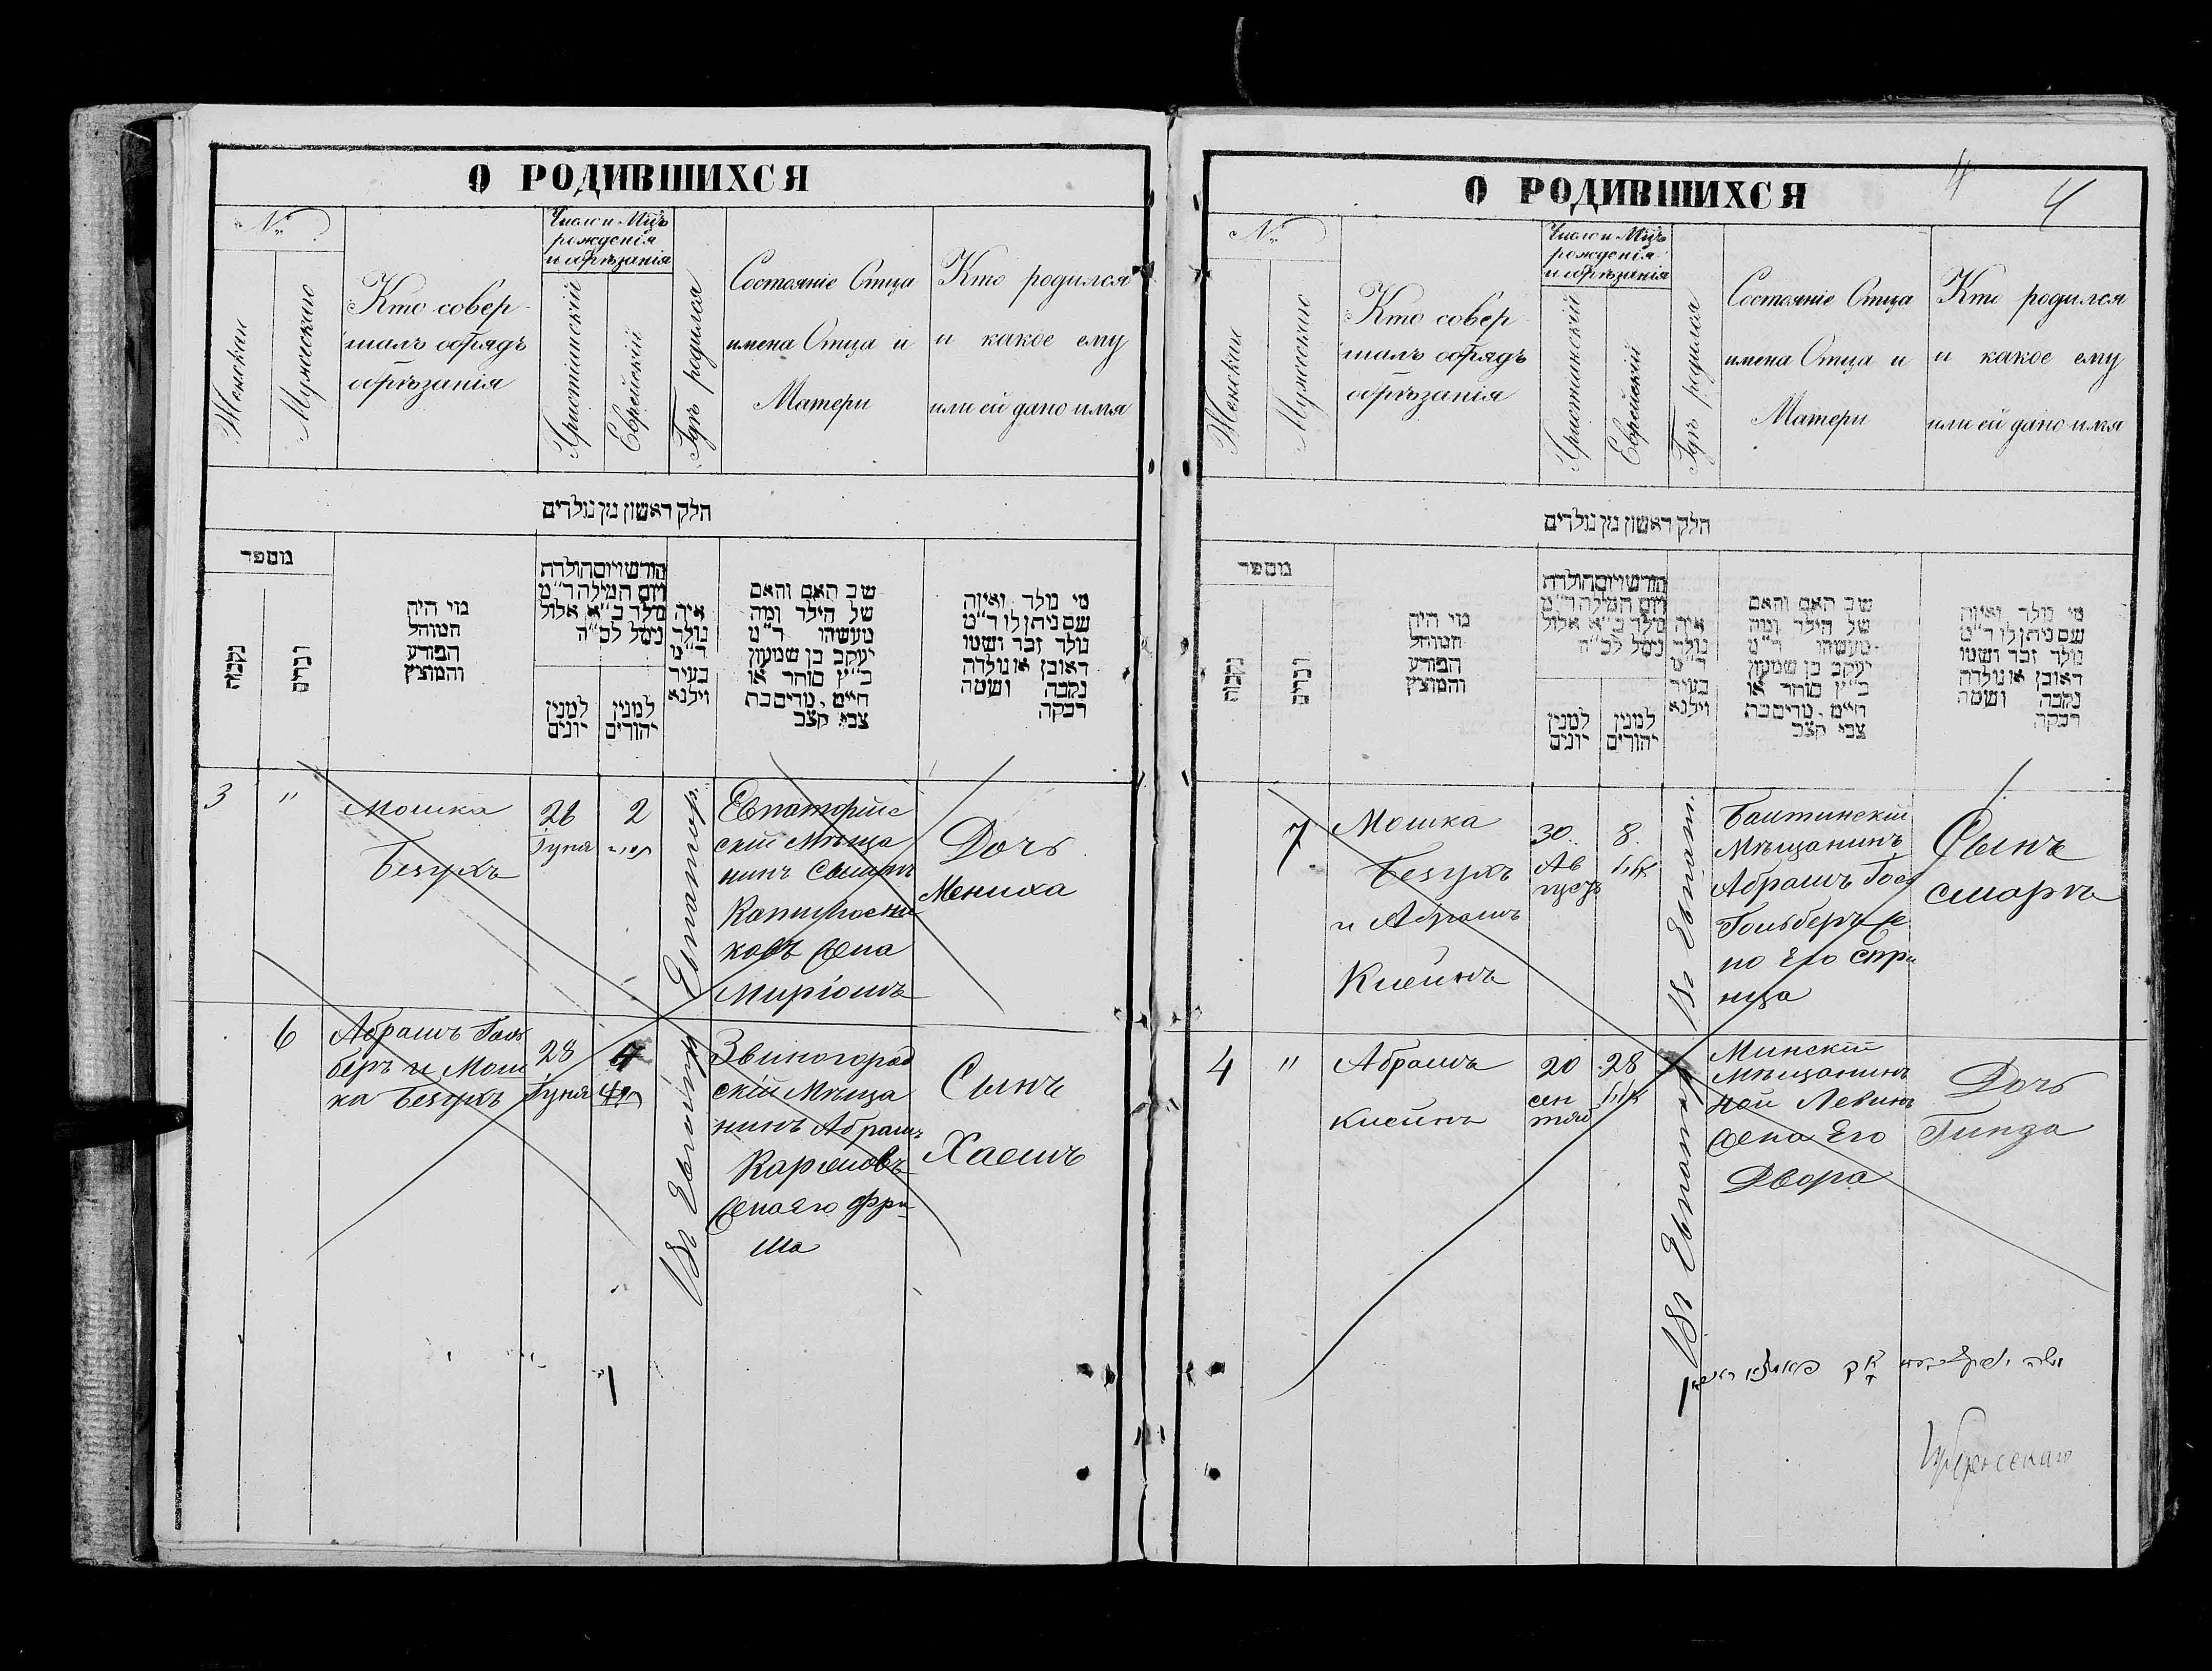 О РОДИВШИХСЯ
№
Женскии
Мужескаго
Кто совер
шалъ обрядъ
обрѣзанія
Число и Мцъ
рожденія
и обрѣзанія
Христіанскій
Еврейскій
Гдѣ родился
Состояніе Отца
имена Отца и
Матери
Кто родился
и какое ему
или ей дано имя
חלק ראשון מן נולדים
מספר
נקבות
זכרים
מי היה
המוהל
הפורע
והמוצץ
חודש ויום הולדת
ויום המילה ד"מ
נולד כ"א אלול
נימל לס"ה
למנין
יונים
למנין
יהודים
איה
נולד
ד"מ
בעיר
וילנא
שב האם והאם
של הילד ומה
מעשהו ד"מ
יעקב בן שמעון
כ"ץ סוחר או
חיים, מרים בת
צבי קצב
מי נולד ואיזה
שם ניתן לו ד"מ
נולד זכר ושמו
ראובן או נולדה
נקבה ושמה
רבקה
3
"
Мошка
Безухъ
26
Іуня
2
Евпатор.
Евпаторійс
скій Мѣща
нинъ
жена
Миріамъ
Дочь
Мениха
6
Абрамъ Голь
беръ и Мош
ка Безухъ
28
Іуня
4
Въ Евпатор
Звиногород
скій Мѣща
нинъ Абрамъ
жена его Фри
ма
Сынъ
Хаемъ
О РОДИВШИХСЯ
4
4
№
Женскии
Мужескаго
Кто совер
шалъ обрядъ
обрѣзанія
Число и Мцъ
рожденія
и обрѣзанія
Христіанскій
Еврейскій
Гдѣ родился
Состояніе Отца
имена Отца и
Матери
Кто родился
и какое ему
или ей дано имя
חלק ראשון מן נולדים
מספר
נקבות
זכרים
מי היה
המוהל
הפורע
והמוצץ
חודש ויום הולדת
ויום המילה ד"מ
נולד כ"א אלול
נימל לס"ה
למנין
יונים
למנין
יהודים
איה
נולד
ד"מ
בעיר
וילנא
שב האם והאם
של הילד ומה
מעשהו ד"מ
יעקב בן שמעון
כ"ץ סוחר או
חיים, מרים בת
צבי קצב
מי נולד ואיזה
שם ניתן לו ד"מ
נולד זכר ושמו
ראובן או נולדה
נקבה ושמה
רבקה
7
Мошка
Безухъ
и Абрамъ
Клеинъ
30
Ав
густъ
8
אלול
Въ Евпат.
Балтинскій
Мѣщанинъ
Абрамъ
Гольберъ же
на Его Стри
нца
Сынъ
Смаръ
4
"
Абрамъ
Клеинъ
20
сен
тяб
28
אלול
Въ Евпатор
Минскій
Мѣщанинъ
Ной Левинъ
жена Его
Двора
Дочь
Гинда